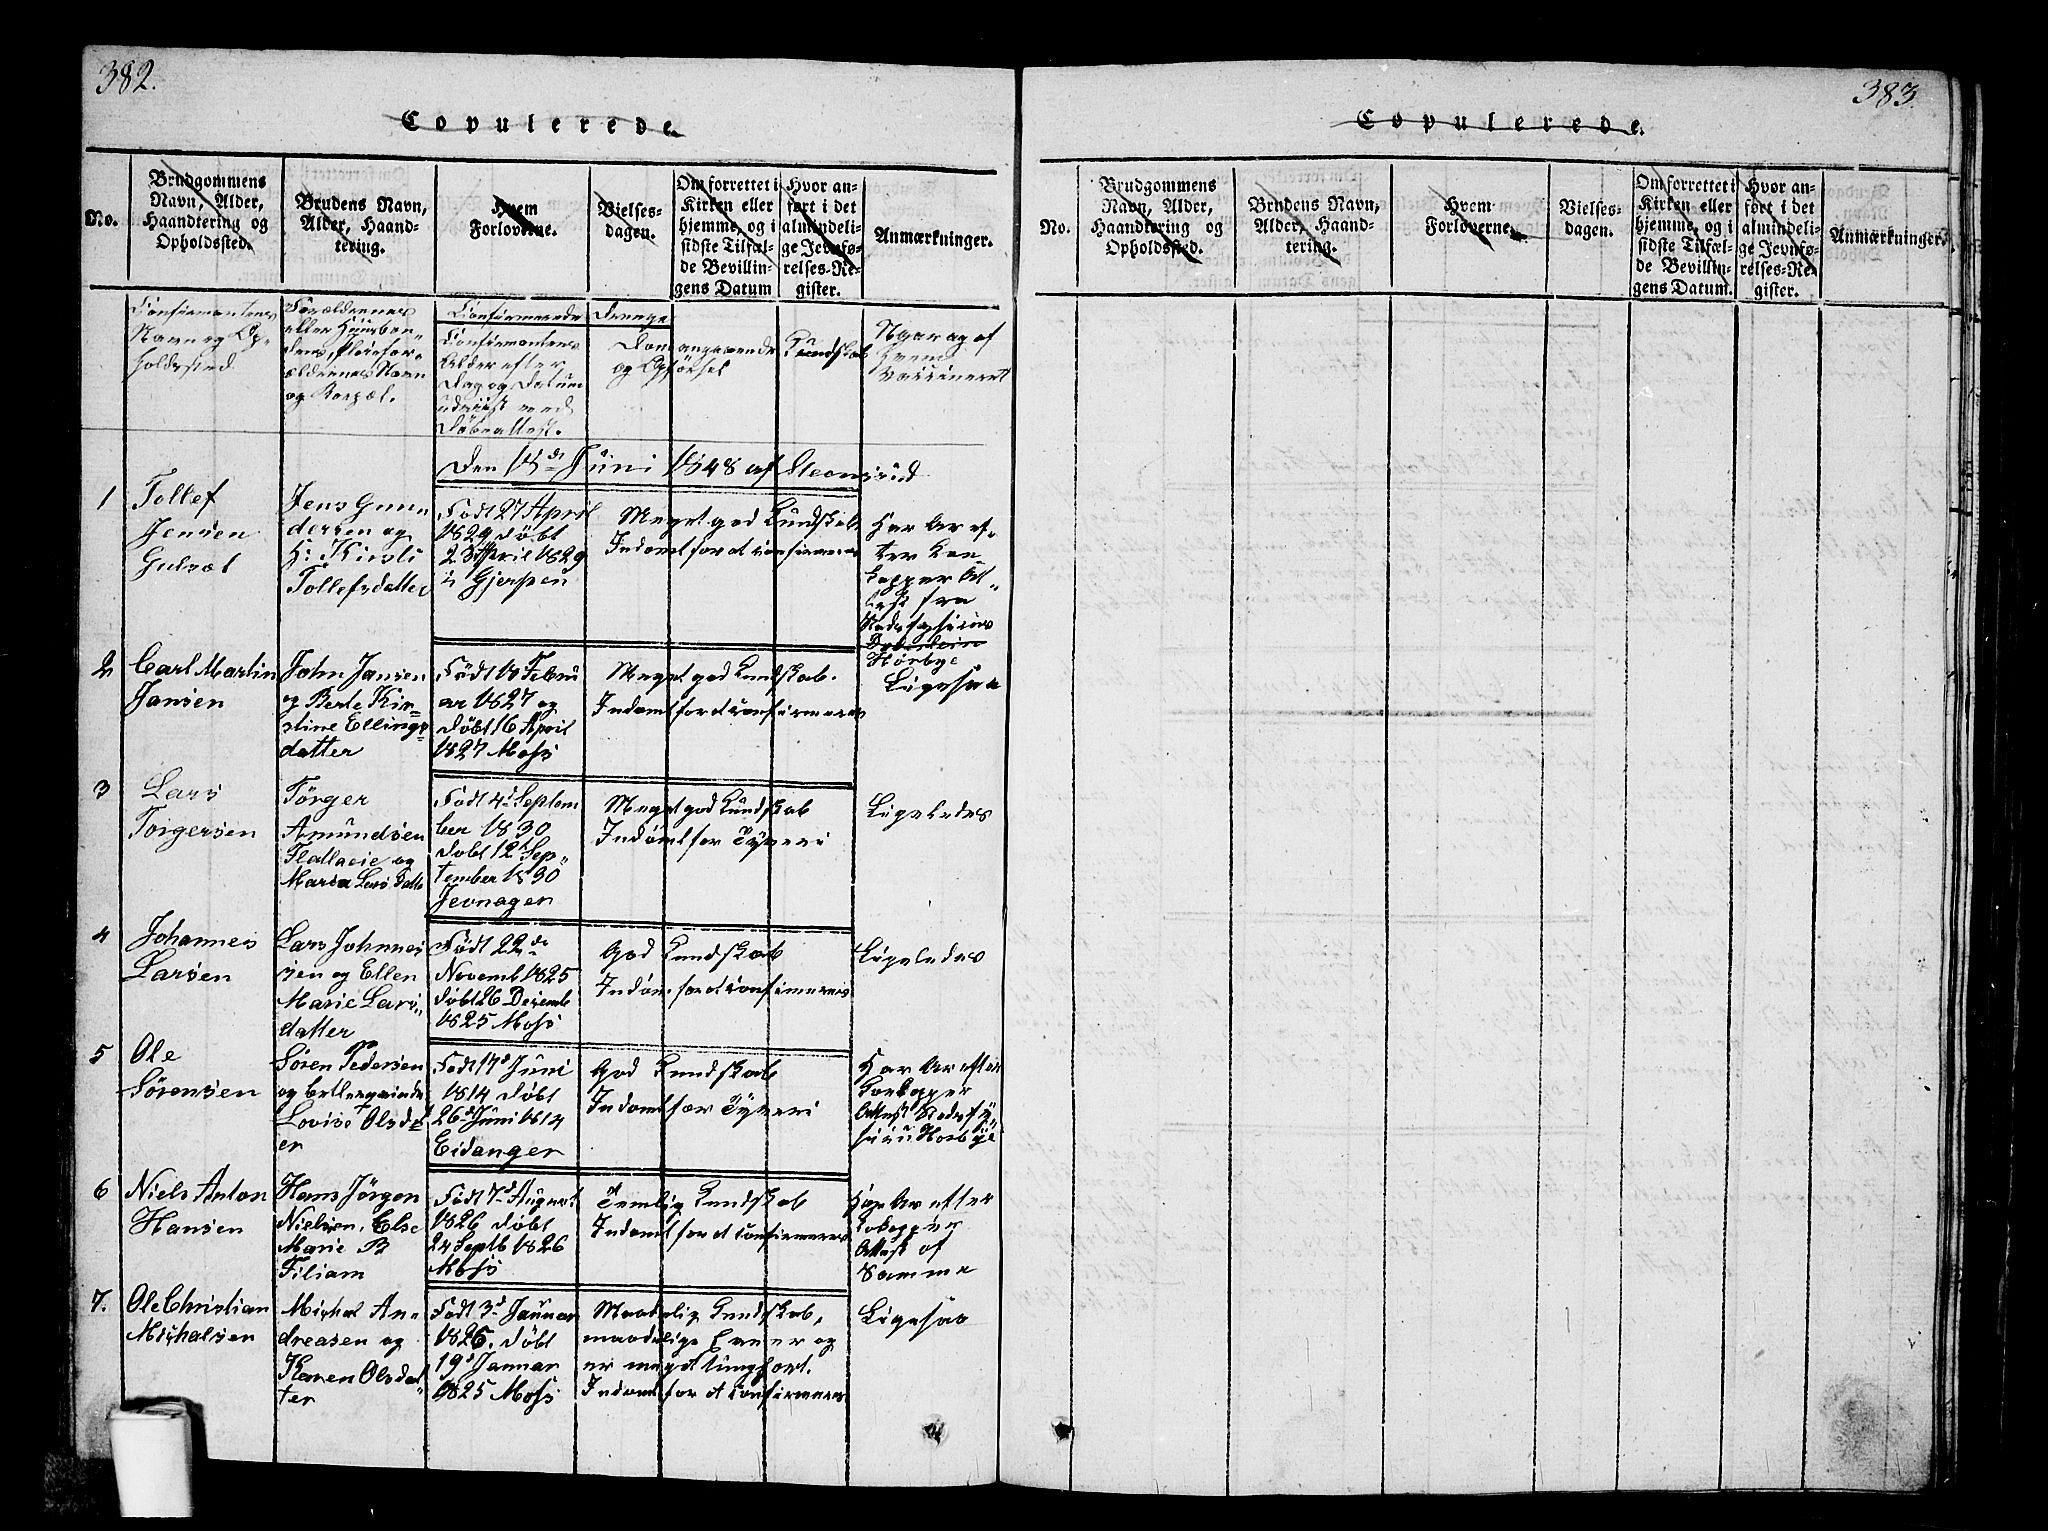 382.
Copulerede.
No.
Brudgommens
Navn, Alder,
Haandtering og
Opholdssted.
Brudens Navn,
Alder, Haand-
tering.
Hvem
Forloverne.
Vielses-
dagen.
Om forrettet i
Kirken eller
hjemme, og i
sidste Tilfæl-
de Bevillin-
gens Datum
Hvor an-
ført i det
almindeli-
ge Jevnfø-
relses-Re-
gister.
Anmærkninger.
Confirmantens
Navn og Op-
holdssted
Forældrenes
eller Huusbon-
dens, Pleiefor-
ældrenes Navn
og Bopæl.
Confirmerede Drenge
Confirmantens
Alder efter
Dag og Datum
udviist med
Døbeattest.
Dom angaaende Kundskab
og Opførsel
Naar og af
hvem
Vaccineret
Den 18de Juni 1848 af
1
Tollef
Jensen
Gulset
Jens Gun
dersen og
H: Kirsti
Tollefsdatter
Født 27 April
1829 døbt
April 1829
i Gjerpen
Meget god Kundskab
Indømt for at confirmeres
Har Ar ef-
ter
kopper At-
test fra
Stadsfysicus
Hørbye
2
Carl Martin
Jansen
John Jansen
og Berte Kir-
stine Ellings-
datter
Født 18 Febru
ar 1827 og
døbt 16 April
1827 Moss
Meget god Kundskab.
Indømt for at confirmeres
Ligesaa
3
Lars
Torgersen
Törger
Amundsen
og
Maria Lars Datt
Født 4d Septem
ber 1830
døbt 12d Sep-
tember 1830
Jevnager
Meget god Kundskab
Indömt for Tyveri
Ligeledes
4
Johannes
Larsen
Lars Johnnes
sen og Ellen
Marie Lars-
datter
Født 22de
Novemb 1825
døbt 26 Decemb
1825 Moss
God Kundskab
Indöm. for at confirmeres
Ligeledes
5
Ole
Sörensen
Sören Pedersen
og
Lovise Olsdt
er
Født 17d Juni
1814 døbt
26d Juni 1814
Eidanger
God Kundskab
Indømt for Tyveri
Har Ar efter
Koekopper
Attest Stadsfy
sicus Horbye
6
Niels Anton
Hansen
Hans Jörgen
Nielsen, Else
Marie B
Filiam
Født 7d August
1826 døbt
24 Septb 1826
Moss
Temlig Kundskab
Indømt for at confirmeres
Ar efter
Kokopper
Attest af
Samme
7.
Ole Christian
Michalsen
Michal An-
dreasen og
Karen Olsdat-
ter
Født 3d Januar
1825. døbt
19d Januar
1825 Moss
Maadelig Kundskab,
maadelige Evner og
er meget tungført.
Indømt for at confirmeres
Ligesaa
383.
Copulerede.
No.
Brudgommens
Navn, Alder,
Haandtering og
Opholdssted.
Brudens Navn,
Alder, Haand-
tering.
Hvem
Forloverne.
Vielses-
dagen.
Om forrettet i
Kirken eller
hjemme, og i
sidste Tilfæl-
de Bevillin-
gens Datum.
Hvor an-
ført i det
almindeli-
ge Jevnfø-
relses-Re-
gister.
Anmærkninger.